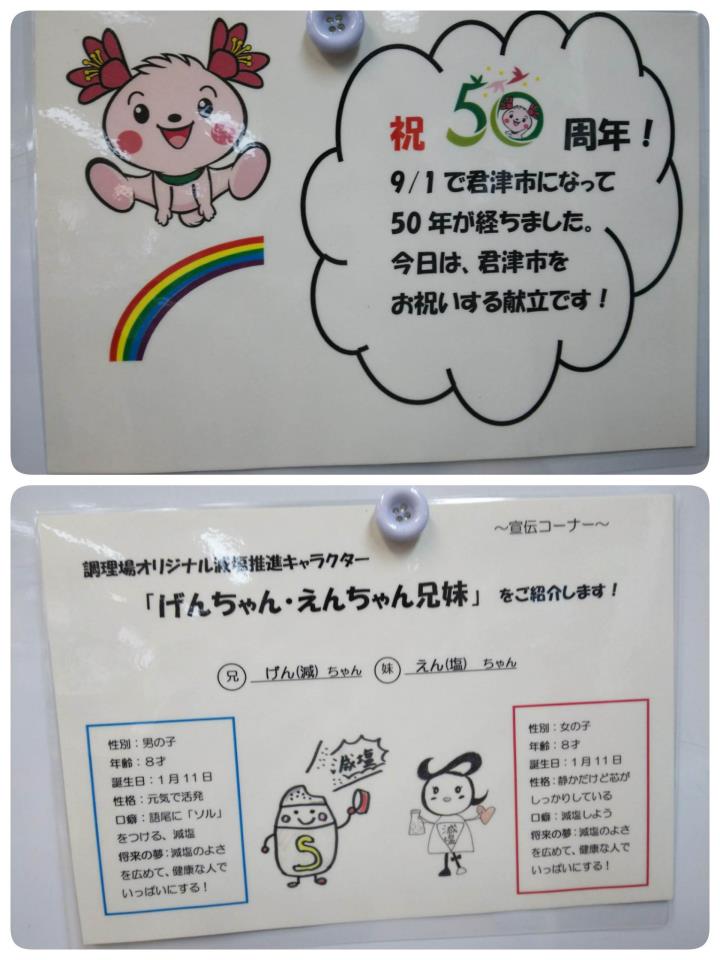 祝 50 周年！
9/1で君津市になって
50年が経ちました。
今日は、君津市を
お祝いする献立です！
～宣伝コーナー～
調理場オリジナル減塩推進キャラクター
「げんちゃん・えんちゃん兄妹」をご紹介します！
兄 げん(減)ちゃん 妹 えん(塩)ちゃん
性別：男の子
年齢：８才
誕生日：１月１１日
性格：元気で活発
口癖：語尾に「ソル」
をつける、減塩
将来の夢：減塩のよさ
を広めて、健康な人で
いっぱいにする！
減塩
S
減塩
性別：女の子
年齢：８才
誕生日：１月１１日
性格：静かだけど芯が
しっかりしている
口癖：減塩しよう
将来の夢：減塩のよさ
を広めて、健康な人で
いっぱいにする！